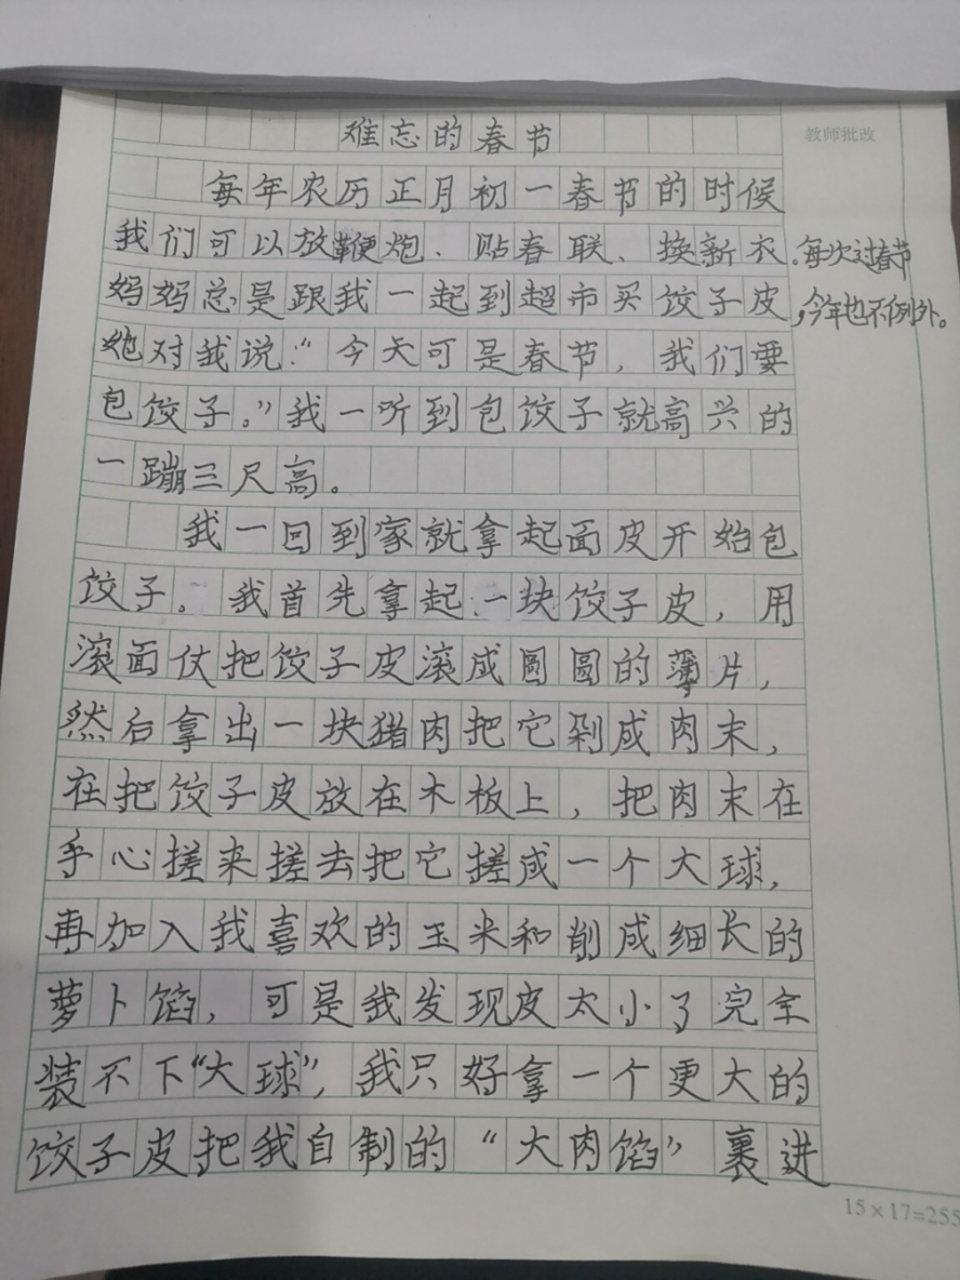 难忘的春节
教师批改
每年农历正月初一春节的时候
我们可以放鞭炮、贴春联、换新衣.每次过春节
妈妈总是跟我一起到超市买饺子皮,今年也不例外。
她对我说:“今天可是春节,我们要
包饺子。”我一听到包饺子就高兴的
一蹦三尺高。
我一回到家就拿起面皮开始包
饺子。我首先拿起一块饺子皮,用
滚面仗把饺子皮滚成圆圆的薄片,
然后拿出一块猪肉把它剁成肉末,
在把饺子皮放在木板上,把肉末在
手心搓来搓去把它搓成一个大球,
再加入我喜欢的玉米和削成细长的
萝卜馅,可是我发现皮太小了完全
装不下“大球”,我只好拿一个更大的
饺子皮把我自制的“大肉馅”裹进
15×17=255